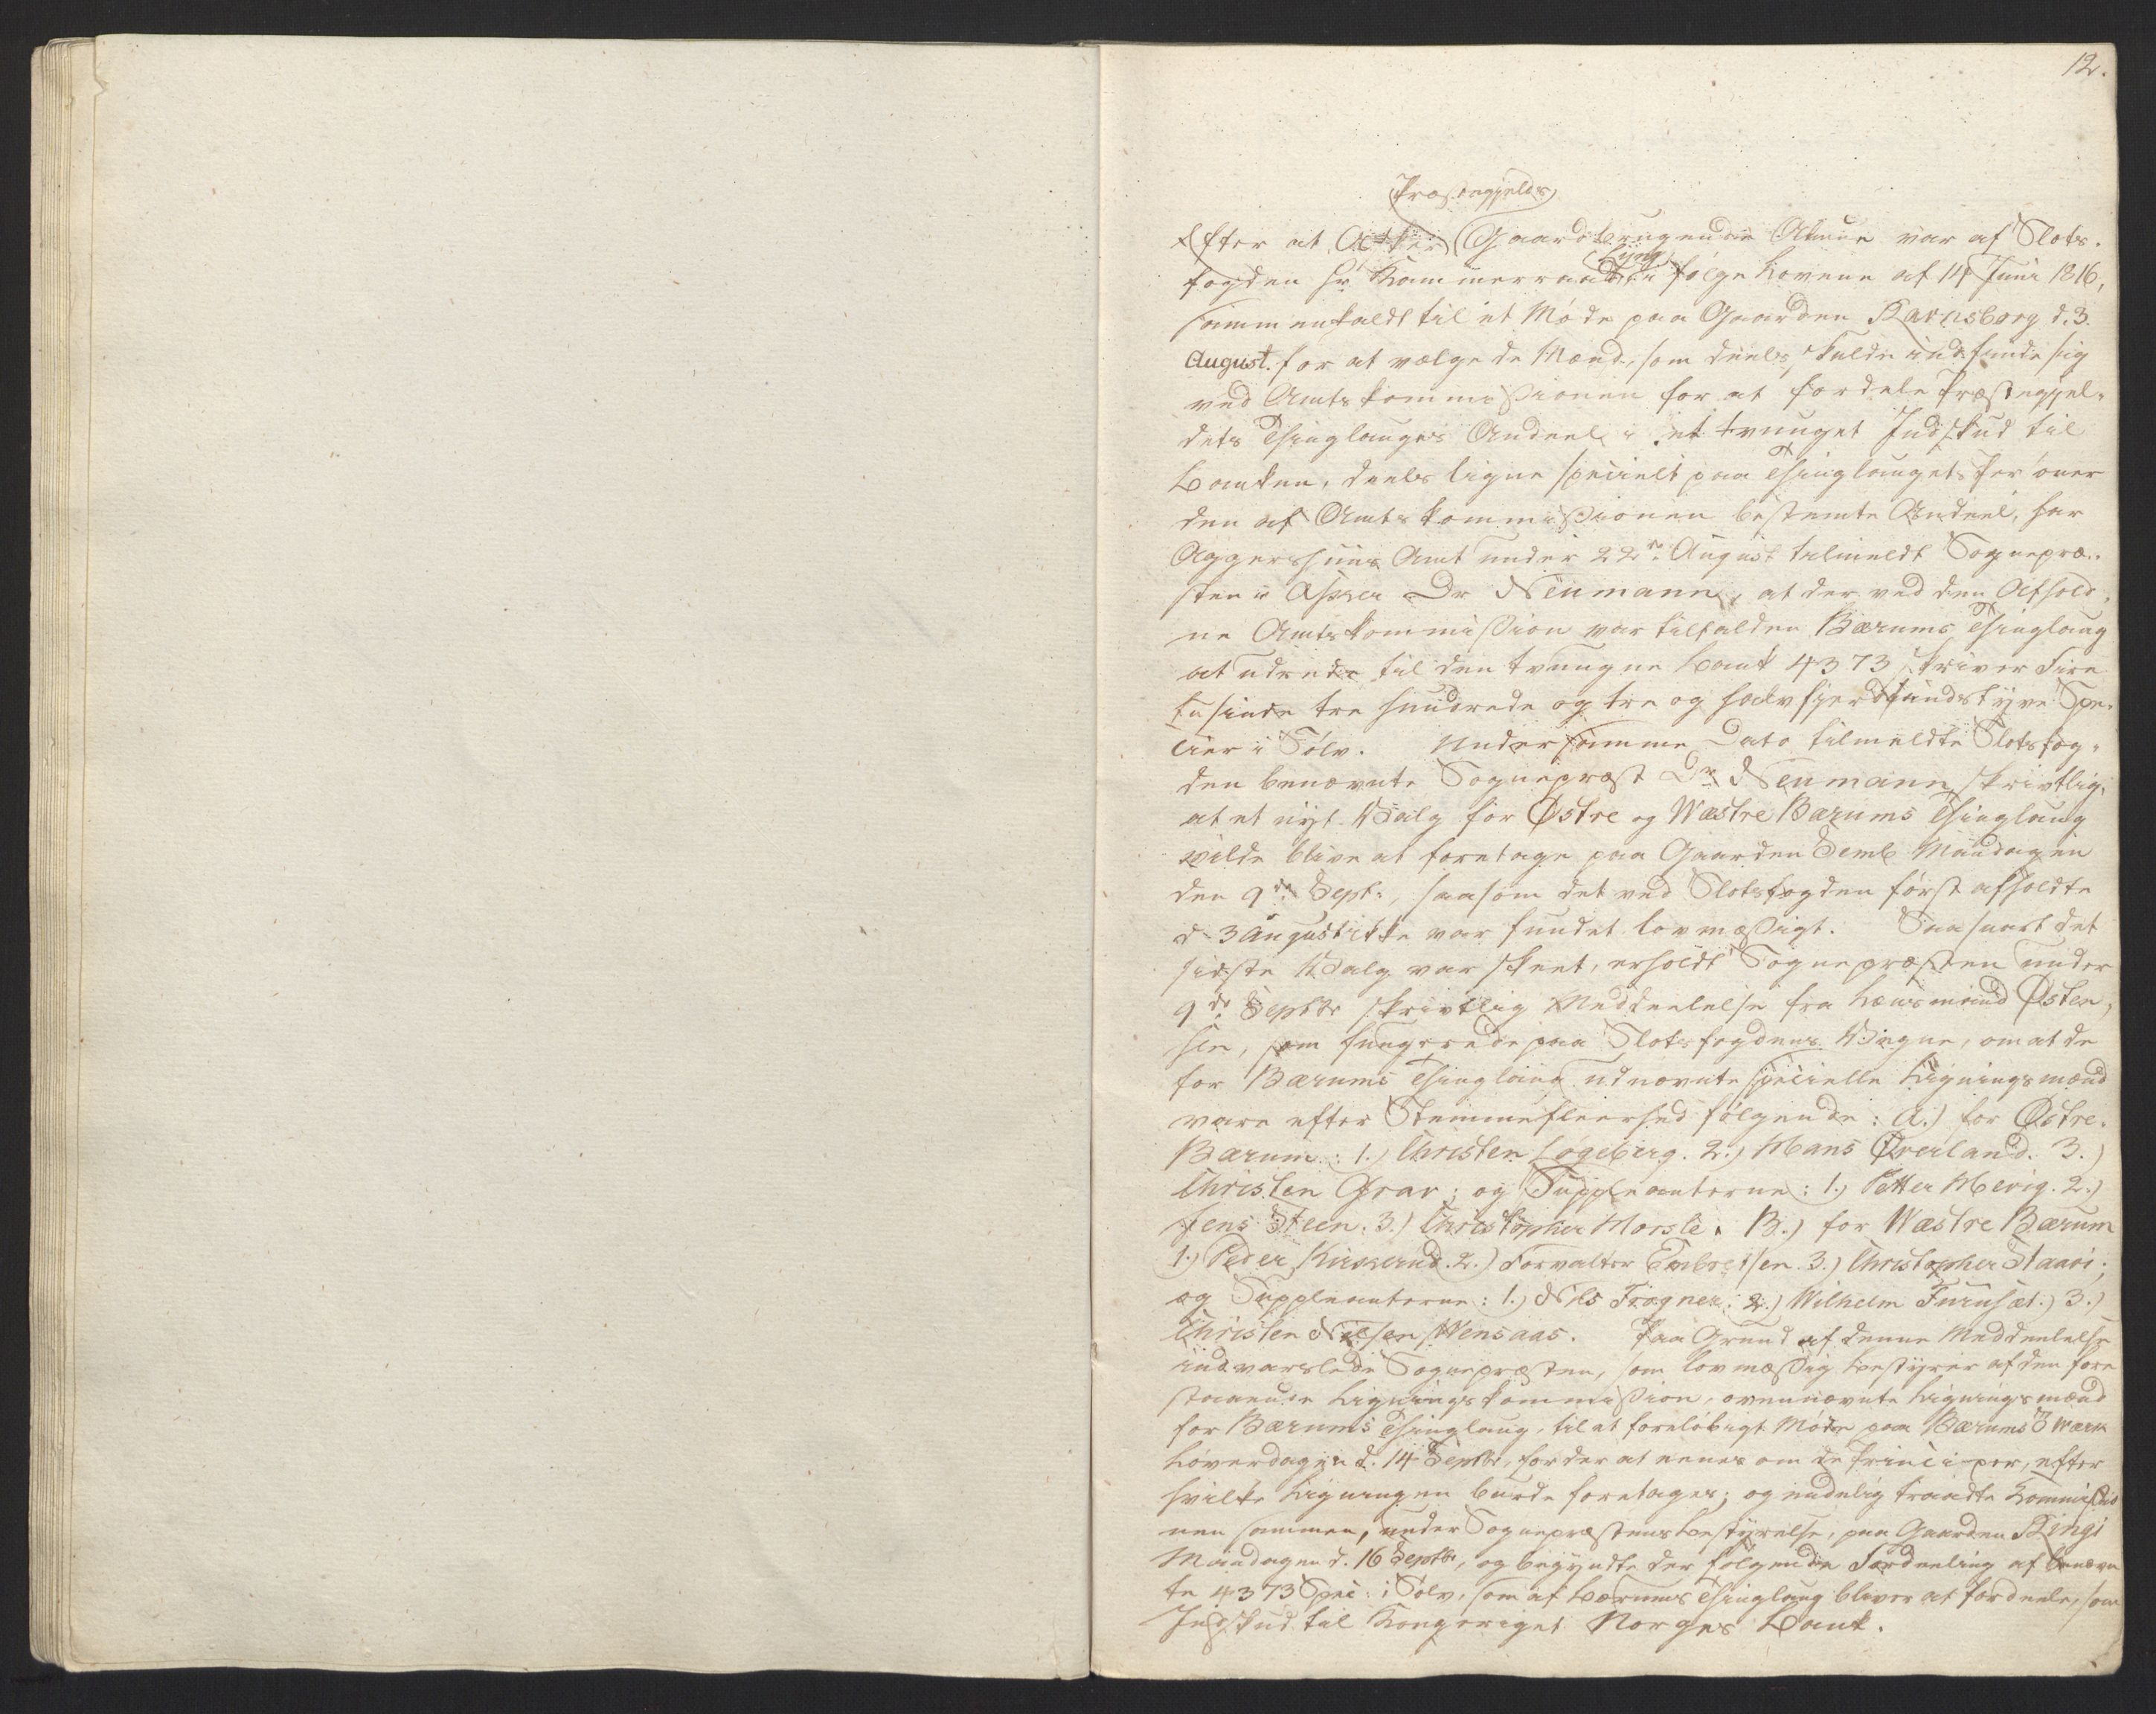 12.
Præstegjelds
Efter at Asker Gaardbrugende Almue var af Slots-
Lyng
fogden Hr Kammerraad i følge Lovene af 14 Juni 1816,
sammenkaldt til et Møde paa Gaarden Ravnsborg d. 3.
August. for at vælge de Mænd, som deels skulde indfinde sig
ved Amtskommissionen for at fordele Præstegjel-
dets Thinglaugs Andeel i et tvunget Indskud til
Banken, deels ligne specielt paa Thinglaugets Før over
den af Amtskommissionen bestemte Andeel, har
Aggershuus Amt under 22de August tilmeldt Sognepræ-
sten i Asker Dr Neumann, at der ved den Afhold-
ne Amtskommission var tilfalden Bærums Thinglaug
at udrede til den tvungne Bank 4373 skriver Fire
tusinde tre hundrede og tre og halvfjerdsindstyve Spe-
cier i Sølv. Under samme Dato tilmeldte Slotsfog-
den benævnte Sognepræst Dr Neumann skrivtlig,
at et nyt Valg for Østre og Wæstre Bærums Thinglaug
vilde blive at foretage paa Gaarden Semb Mandagen
den 9de Sept:, saasom det ved Slotsfogden først afholdte
d. 3 August ikke var fundet lovmæssigt. Saasnart det
sidste Valg var skeet, erholdt Sognepræsten under
9de Septbr skrivtlig Meddeelelse fra Lænsmand Østen-
sen, som fungerede paa Slotsfogdens Vegne, om at de
for Bærums Thinglaug udnævnte specielle Ligningsmænd
vare efter Stemmefleerhed følgende: A.) for Østre.
Bærum: 1.) Christen Løgeberg. 2.) Mans Øverland. 3.)
Christen Grav; og Suppleanterne: 1.) Petter Mevig. 2.)
Jens Steen. 3.) Christopher Horsle. B.) for Wæstre Bærum
1.) Peder Kirkerud. 2.) Forvalter Embretsen. 3.) Christopher Staavi;
og Suppleanterne: 1.) Nils Frogner. 2.) Wilhelm Furuhset.) 3.)
Christen Nilsen Wensaas. Paa Grund af denne Meddeelelse
indvarslede Sognepræsten, som lovmæssig Bestyrer af den fore
staaende Ligningskommission, ovennævnte Ligningsmænd
for Bærums Thinglaug, til at foreløbigt Møde paa Bærums Wærk
Løverdagen d. 14 Septbr, for der at enes om de Principer, efter
hvilke Ligningen burde foretages; og endelig traadte Kommissio
nen sammen, under Sognepræstens Bestyrelse, paa Gaarden Ringi
Mandagen d. 16 Septbr, og begyndte der følgende Fordeeling af benævn
te 4373 Spec: i Sølv, som af Bærums Thinglaug bliver at fordeele, som
Indskud til Kongeriget Norges Bank.